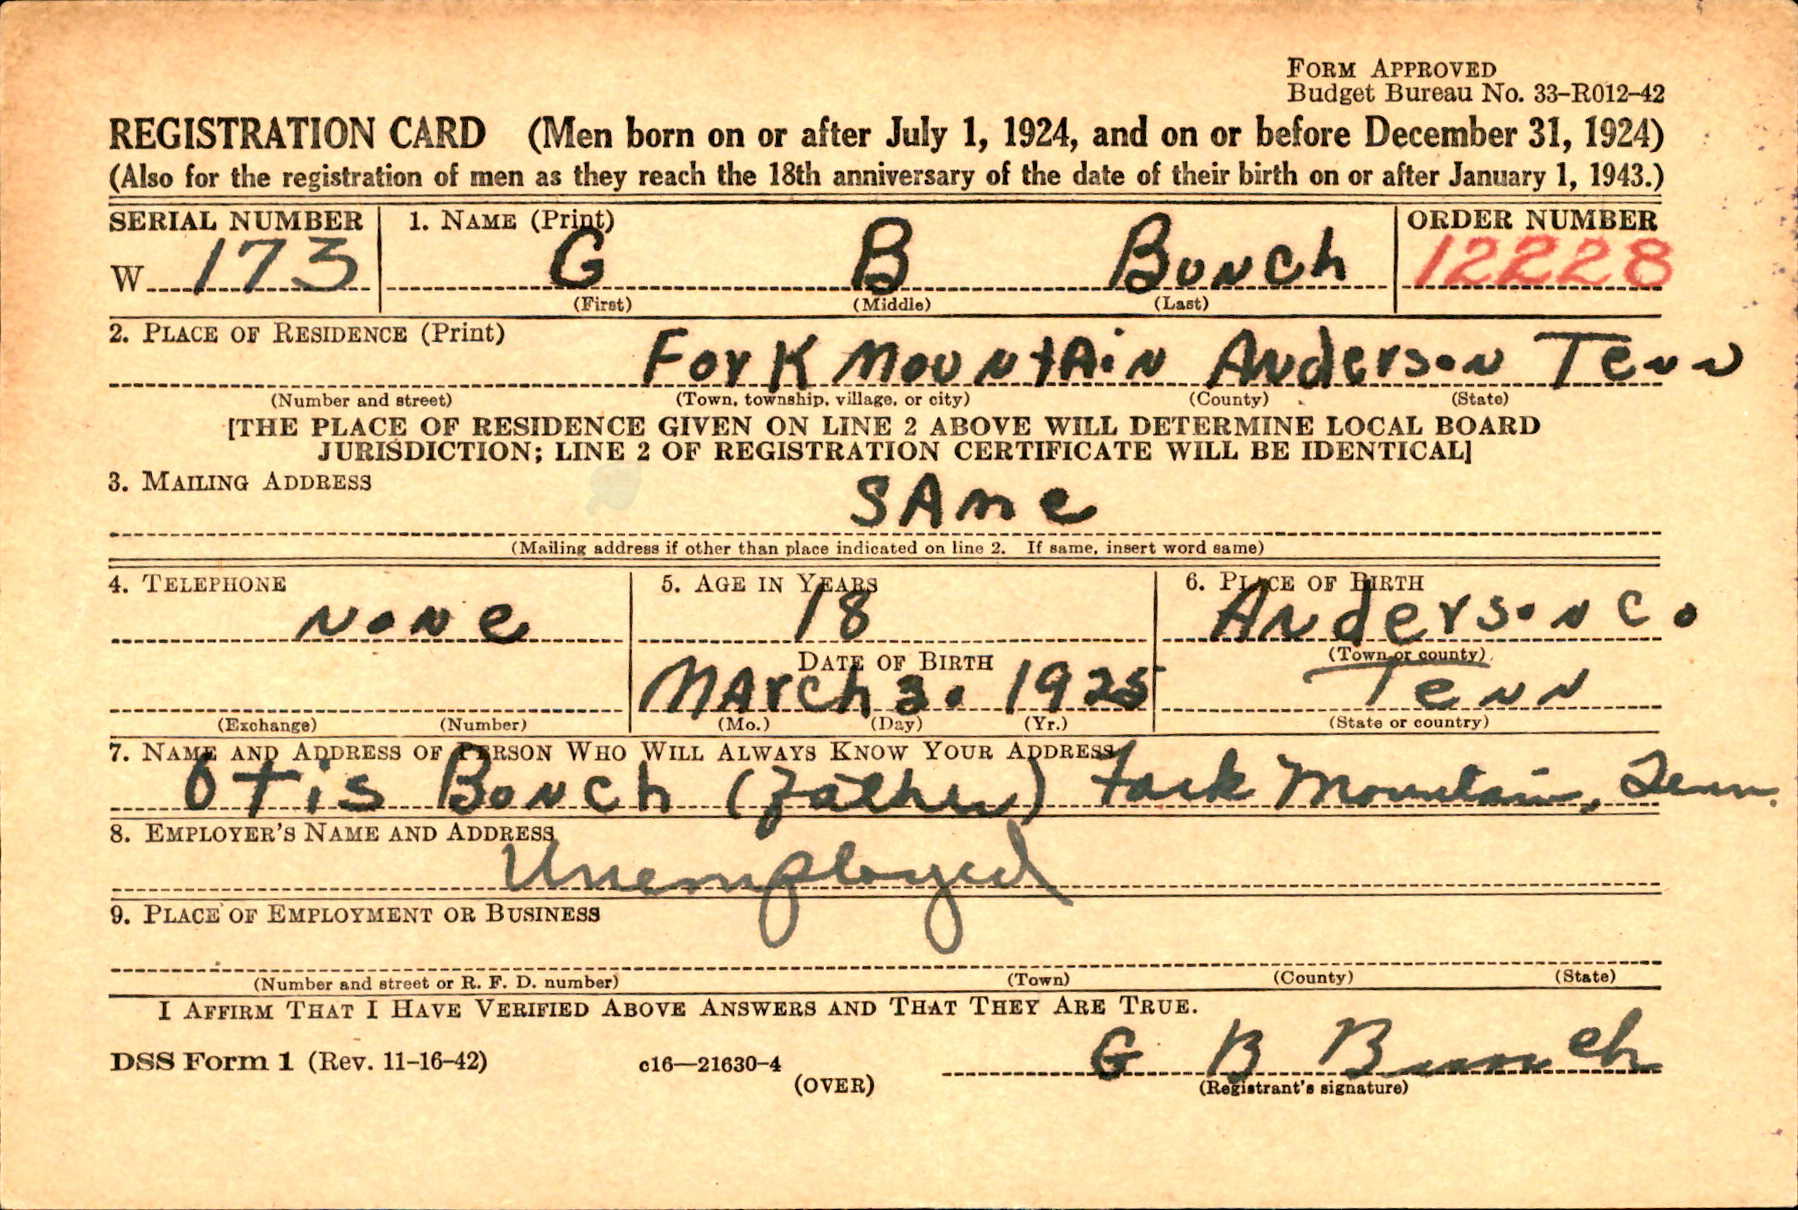 FORM APPROVED
Budget Bureau No. 33-R012-42
REGISTRATION CARD (Men born on or after July 1, 1924, and on or before December 31, 1924)
(Also for the registration of men as they reach the 18th anniversary of the date of their birth on or after January 1, 1943.)
SERIAL NUMBER 1. NAME (Print) ORDER NUMBER
W 173 G B Bunch 12228
(First) (Middle) (Last)
2. PLACE OF RESIDENCE (Print)
Fork Mountain Anderson Tenn
(Number and street) (Town, township, village, or city) (County) (State)
[THE PLACE OF RESIDENCE GIVEN ON LINE 2 ABOVE WILL DETERMINE LOCAL BOARD
JURISDICTION; LINE 2 OF REGISTRATION CERTIFICATE WILL BE IDENTICAL]
3. MAILING ADDRESS
SAme
(Mailing address if other than place indicated on line 2. If same, insert word same)
4. TELEPHONE 5. AGE IN YEARS 6. PLACE OF BIRTH
None 18 Anderson Co.
DATE OF BIRTH (Town or county)
March 3. 1925 Tenn
(Exchange) (Number) (Mo.) (Day) (Yr.) (State or country)
7. NAME AND ADDRESS OF PERSON WHO WILL ALWAYS KNOW YOUR ADDRESS
Otis Bunch (Father) Fork Mountain, Tenn.
8. EMPLOYER'S NAME AND ADDRESS
Unemployed
9. PLACE OF EMPLOYMENT OR BUSINESS
(Number and street or R. F. D. number) (Town) (County) (State)
I AFFIRM THAT I HAVE VERIFIED ABOVE ANSWERS AND THAT THEY ARE TRUE.
DSS Form 1 (Rev. 11-16-42) c16—21630-4 G B Bunch
(OVER) (Registrant's signature)